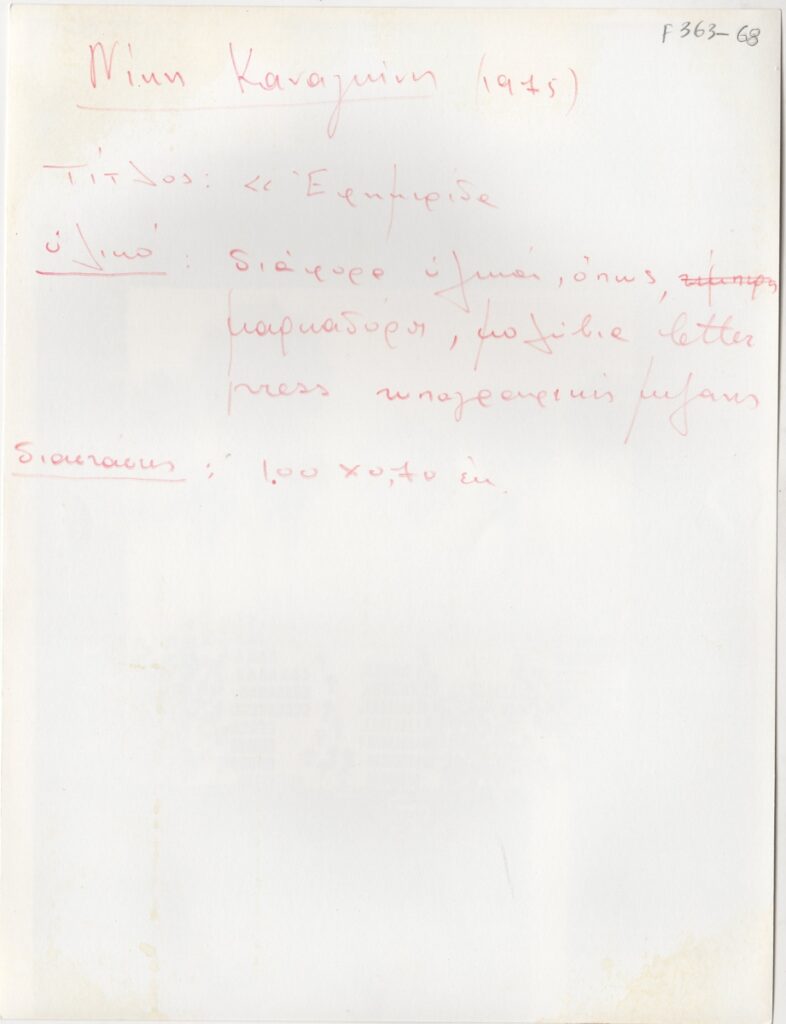 F 363-68
Νίκη Καναγκίνη (1975)
Τίτλος: << Ἐφημερίδα
ὑλικό : διάφορα ὑλικά, ὅπως,
μαρκαδόροι, μολύβια letter
press τυπογραφικής μηχανής
διαστάσεις : 1.00 x 0,70 ἑκ.